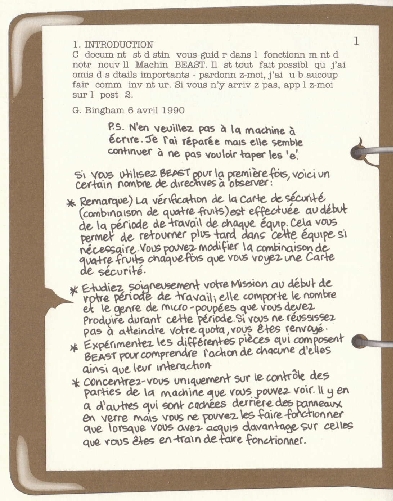 1
1. INTRODUCTION
C docum nt st d stin vous guid r dans l fonctionn m nt d
notr nouv ll Machin BEAST. Il st tout fait possibl qu j'ai
omis d s d tails importants - pardonn z-moi, j'ai u b aucoup
fair comm inv nt ur. Si vous n'y arriv z pas, app l z-moi
sur l post 2.
G. Bingham 6 avril 1990
P.S. N'en veuillez pas à la machine à
écrire. Je l'ai réparée mais elle semble
continuer à ne pas vouloir taper les 'e'.
Si vous utilisez BEAST pour la première fois, voici un
certain nombre de directives à observer:
* Remarque) La vérification de la Carte de sécurité
(combinaison de quatre fruits) est effectuée au début
de la période de travail de chaque équip. Cela vous
permet de retourner plus tard dans cette équipe si
nécessaire. Vous pouvez modifier la combinaison de
quatre fruits chaque fois que vous voyez une Carte
de sécurité.
* Etudiez soigneusement votre Mission au début de
votre période de travail; elle comporte le nombre
et le genre de micro-poupées que vous devez
Produire durant cette période. Si vous ne réussissez
pas à atteindre votre quota, vous êtes renvoyé.
* Expérimentez les différentes pièces qui composent
BEAST pour comprendre l'action de chacune d'elles
ainsi que leur interaction
* Concentrez-vous uniquement sur le contrôle des
parties de la machine que vous pouvez voir. Il y en
a d'autres qui sont cachées derrière des panneaux
en verre mais vous ne pouvez les faire fonctionner
que lorsque vous avez acquis davantage sur celles
que vous êtes en train de faire fonctionner.